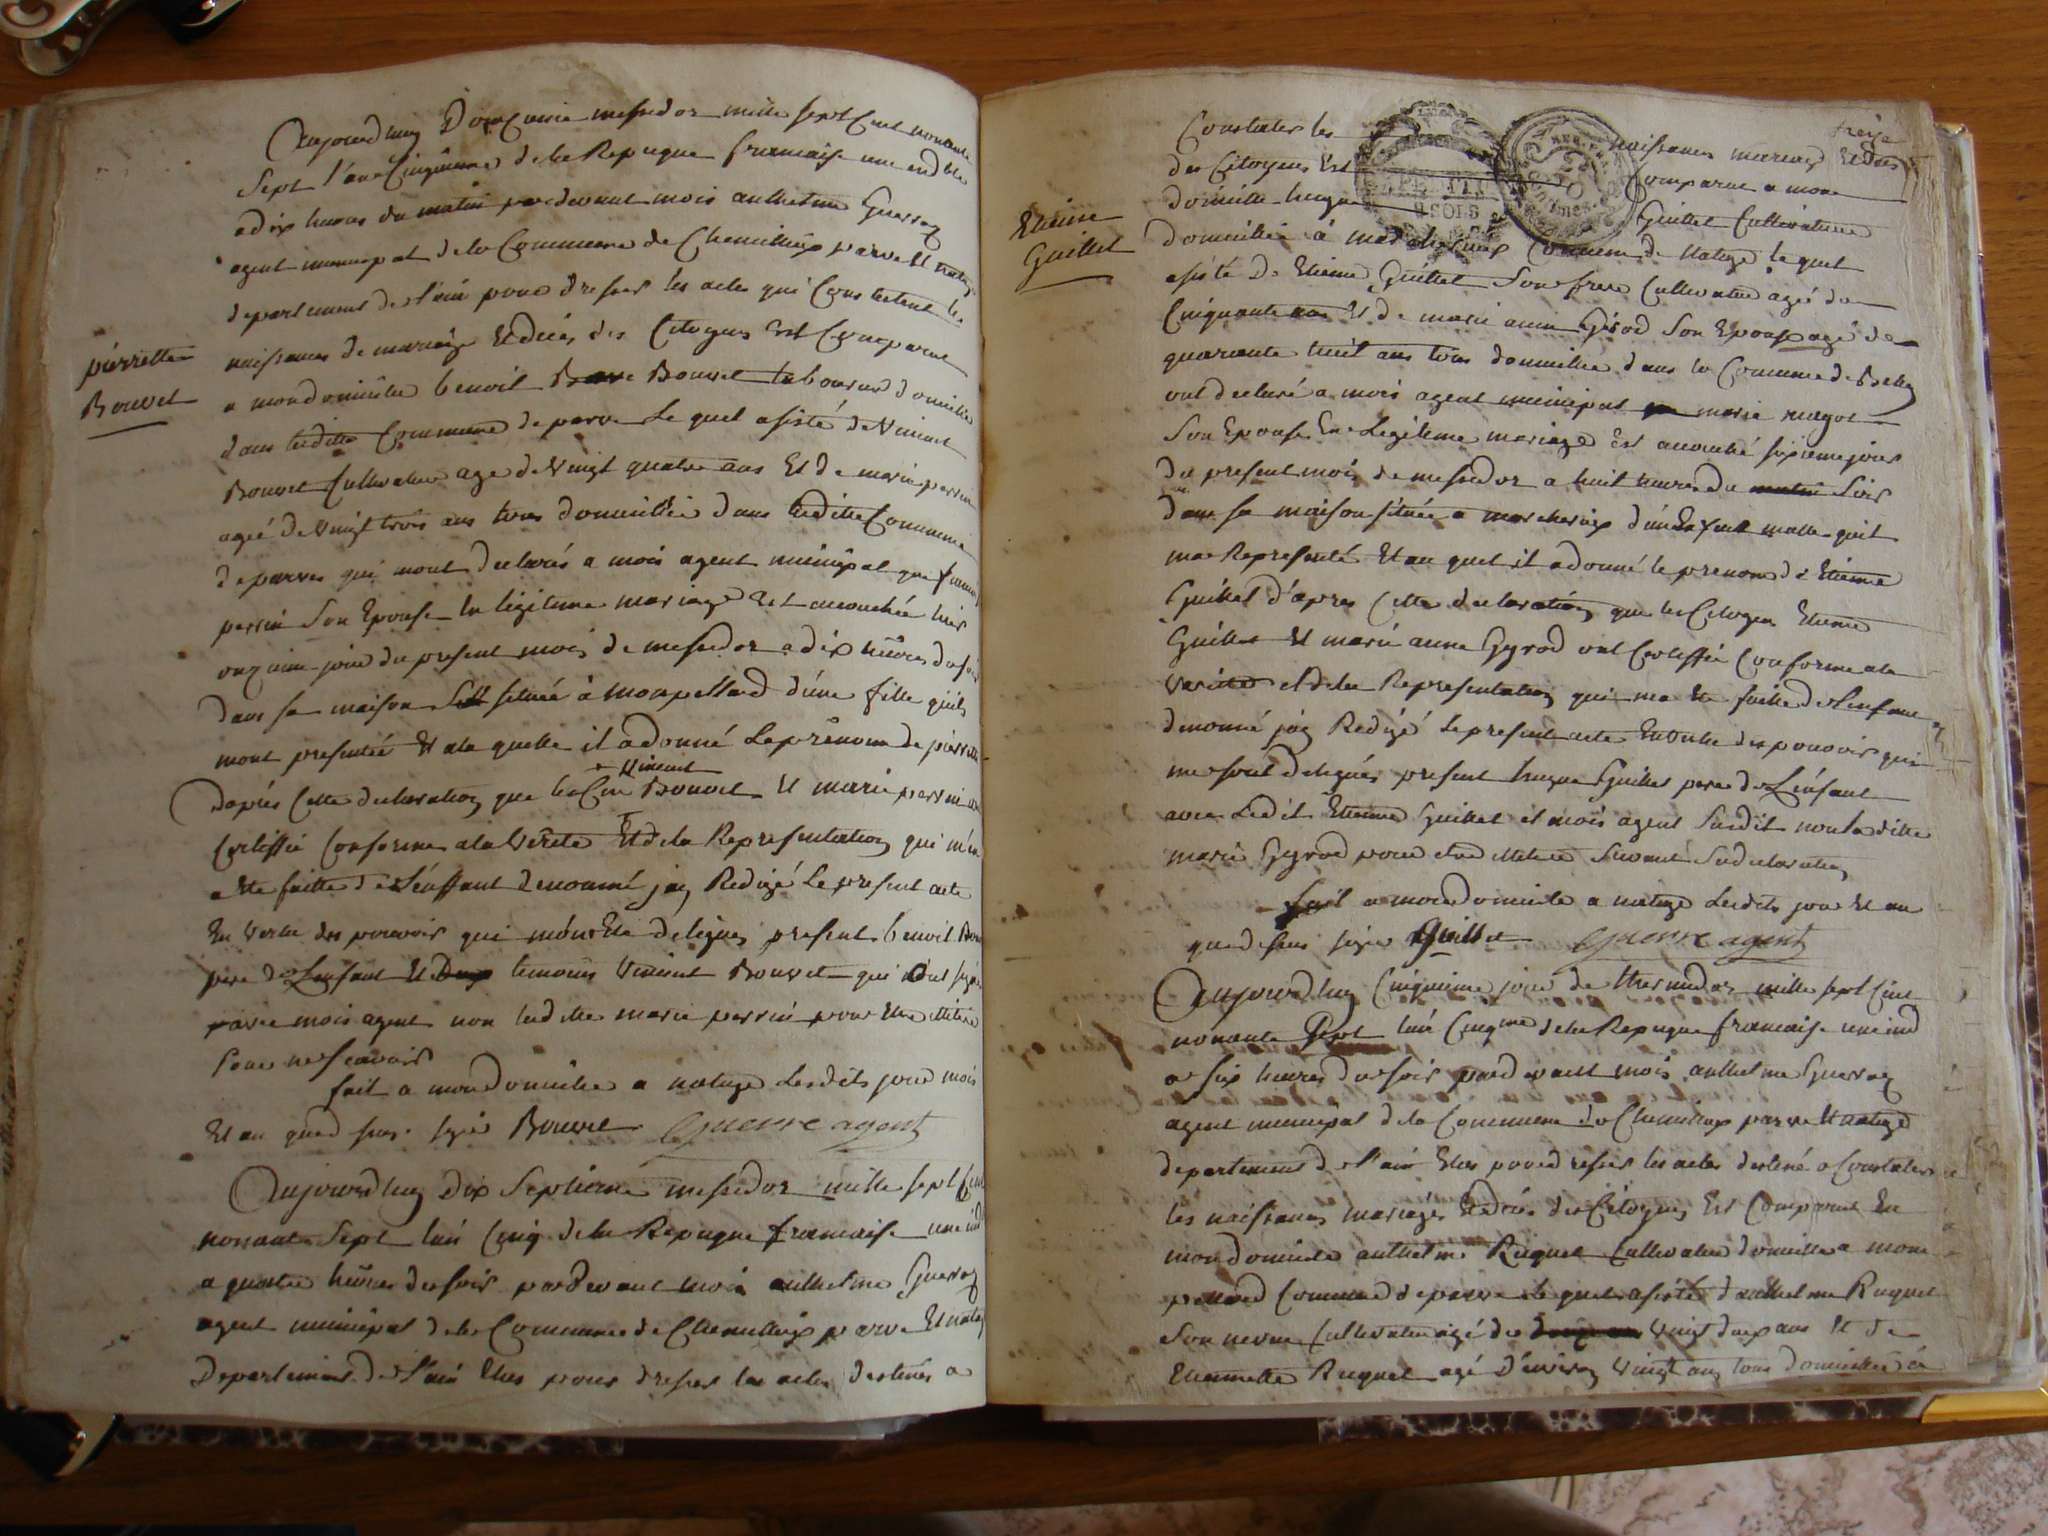 pierrette
Bouvet
Aujourdhuy Douzieme messidor mille sept Cent nonante
Sept l'an Cinquieme de la Repuque francaise une endble
a dix heures du matin pardevant mois anthelme Guerraz
agent municipal de la Commune de Chemillieu parve Et natage
departement de l'ain pour dresser les actes qui Constatent les
naissances de mariage Et deces des Citoyens Est Comparut
a mon domicilie benoit Bouvet laboureur domicilie
dans ladite Commune de parve Le quel asisté de Vincent
Bouvet Cultivateur age de Vingt quatre ans Et de marie perrin
ageé de Vingt trois ans tous domicilié dans laditte Commune
de parves qui mont declarés a mois agent municipal que
perrin Son Epouse En legitime mariage Est accouchée hier
onzieme jour du present mois de messidor a dix heures du soir
dans sa maison situeé à monpellard d'une fille quils
mont presenteé Et a la quelle il a donné Le prénom de pierrette
dapres Cette declaration que le Cin Vincent Bouvet Et marie perrin ont
Certiffié Conforme a la Verite Et de la Representation qui m'en
a ete faitte de L'enffant denommé jay Redigé Le present acte
En Vertu des pouvoirs qui m'ont Ete delegues present benoit
pere de Lenfant Et temoins Vincent Bouvet qui ont signé
avec mois agent non laditte marie perrin pour Etre illiteré
pour ne scavoir
fait a mon domicilie a natage Lesdits jour mois
Et an que de sus. signé Bouvet Guerre agent
Aujourdhuy Dix Septieme messidor mille sept Cent
nonante Sept lan Cinq de la Repuque francaise une ind
a quatre heures du soir pardevant mois anthelme Guerraz
agent municipal de la Commune de Chemillieu parve Et natage
Departement de l'ain Elus pour dresser les actes destinés a
treize
Etiene
Guillet
Constater les naissances mariages Et deces
des Citoyens Est Comparut a mon
domicile hugue Guillet Cultivateur
domicilié à Commune de Natage le quel
asisté de Etiene Guillet Son frere Cultivateur ageé de
Cinquante ans Et de marie anne Gérod Son Epouse agé de
quarante huit ans tous domicilié dans la Commune de
ont declaré a mois agent municipal marie
Son Epouse En Legitime mariage Est accouché sixieme jour
du present mois de messidor a huit heures du Soir
dans sa maison située a d'un Enfant malle quil
ma Representé Et au quel il a donné le prenom de Etiene
Guillet d'apres Cette declaration que les Citoyens Etiene
Guillet Et marie anne Gyrod ont Certiffié Conforme a la
Verité et de la Representation qui ma Ete faitte de Lenfant
denommé jay Redigé Le present acte En Vertu des pouvoir qui
me sont delegués present hugue Guillet pere de L'enfant
avec Ledit Etienne Guillet et mois agent Susdit non ladite
marie Gyrod pour etre illiteré Suivant Sa declaration
fait a mon domicile a natage Lesdits jour Et an
que de sus signé Guillet Guerre agent
Aujourdhuy Cinquieme jour de thermidor mille sept Cent
nonante Sept lan Cinqme de la Repuque francaise une ind
a six heures du soir pardevant mois anthelme Guerraz
agent municipal de la Commune de Chemillieu parve Et natage
departement de l'ain Elus pour dresser les actes destiné a Constater
les naissances mariages Et deces des Citoyens Est Comparut En
mon domicile anthelme Ruquet Cultivateur domicilié a mon
pellard Commune de parve Le quel asisté d'anthelme Ruquet
Son neveu Cultivateur agé de Vingt deux ans Et de
Etiennette Ruquet agé D'environ Vingt ans tous domicilié à